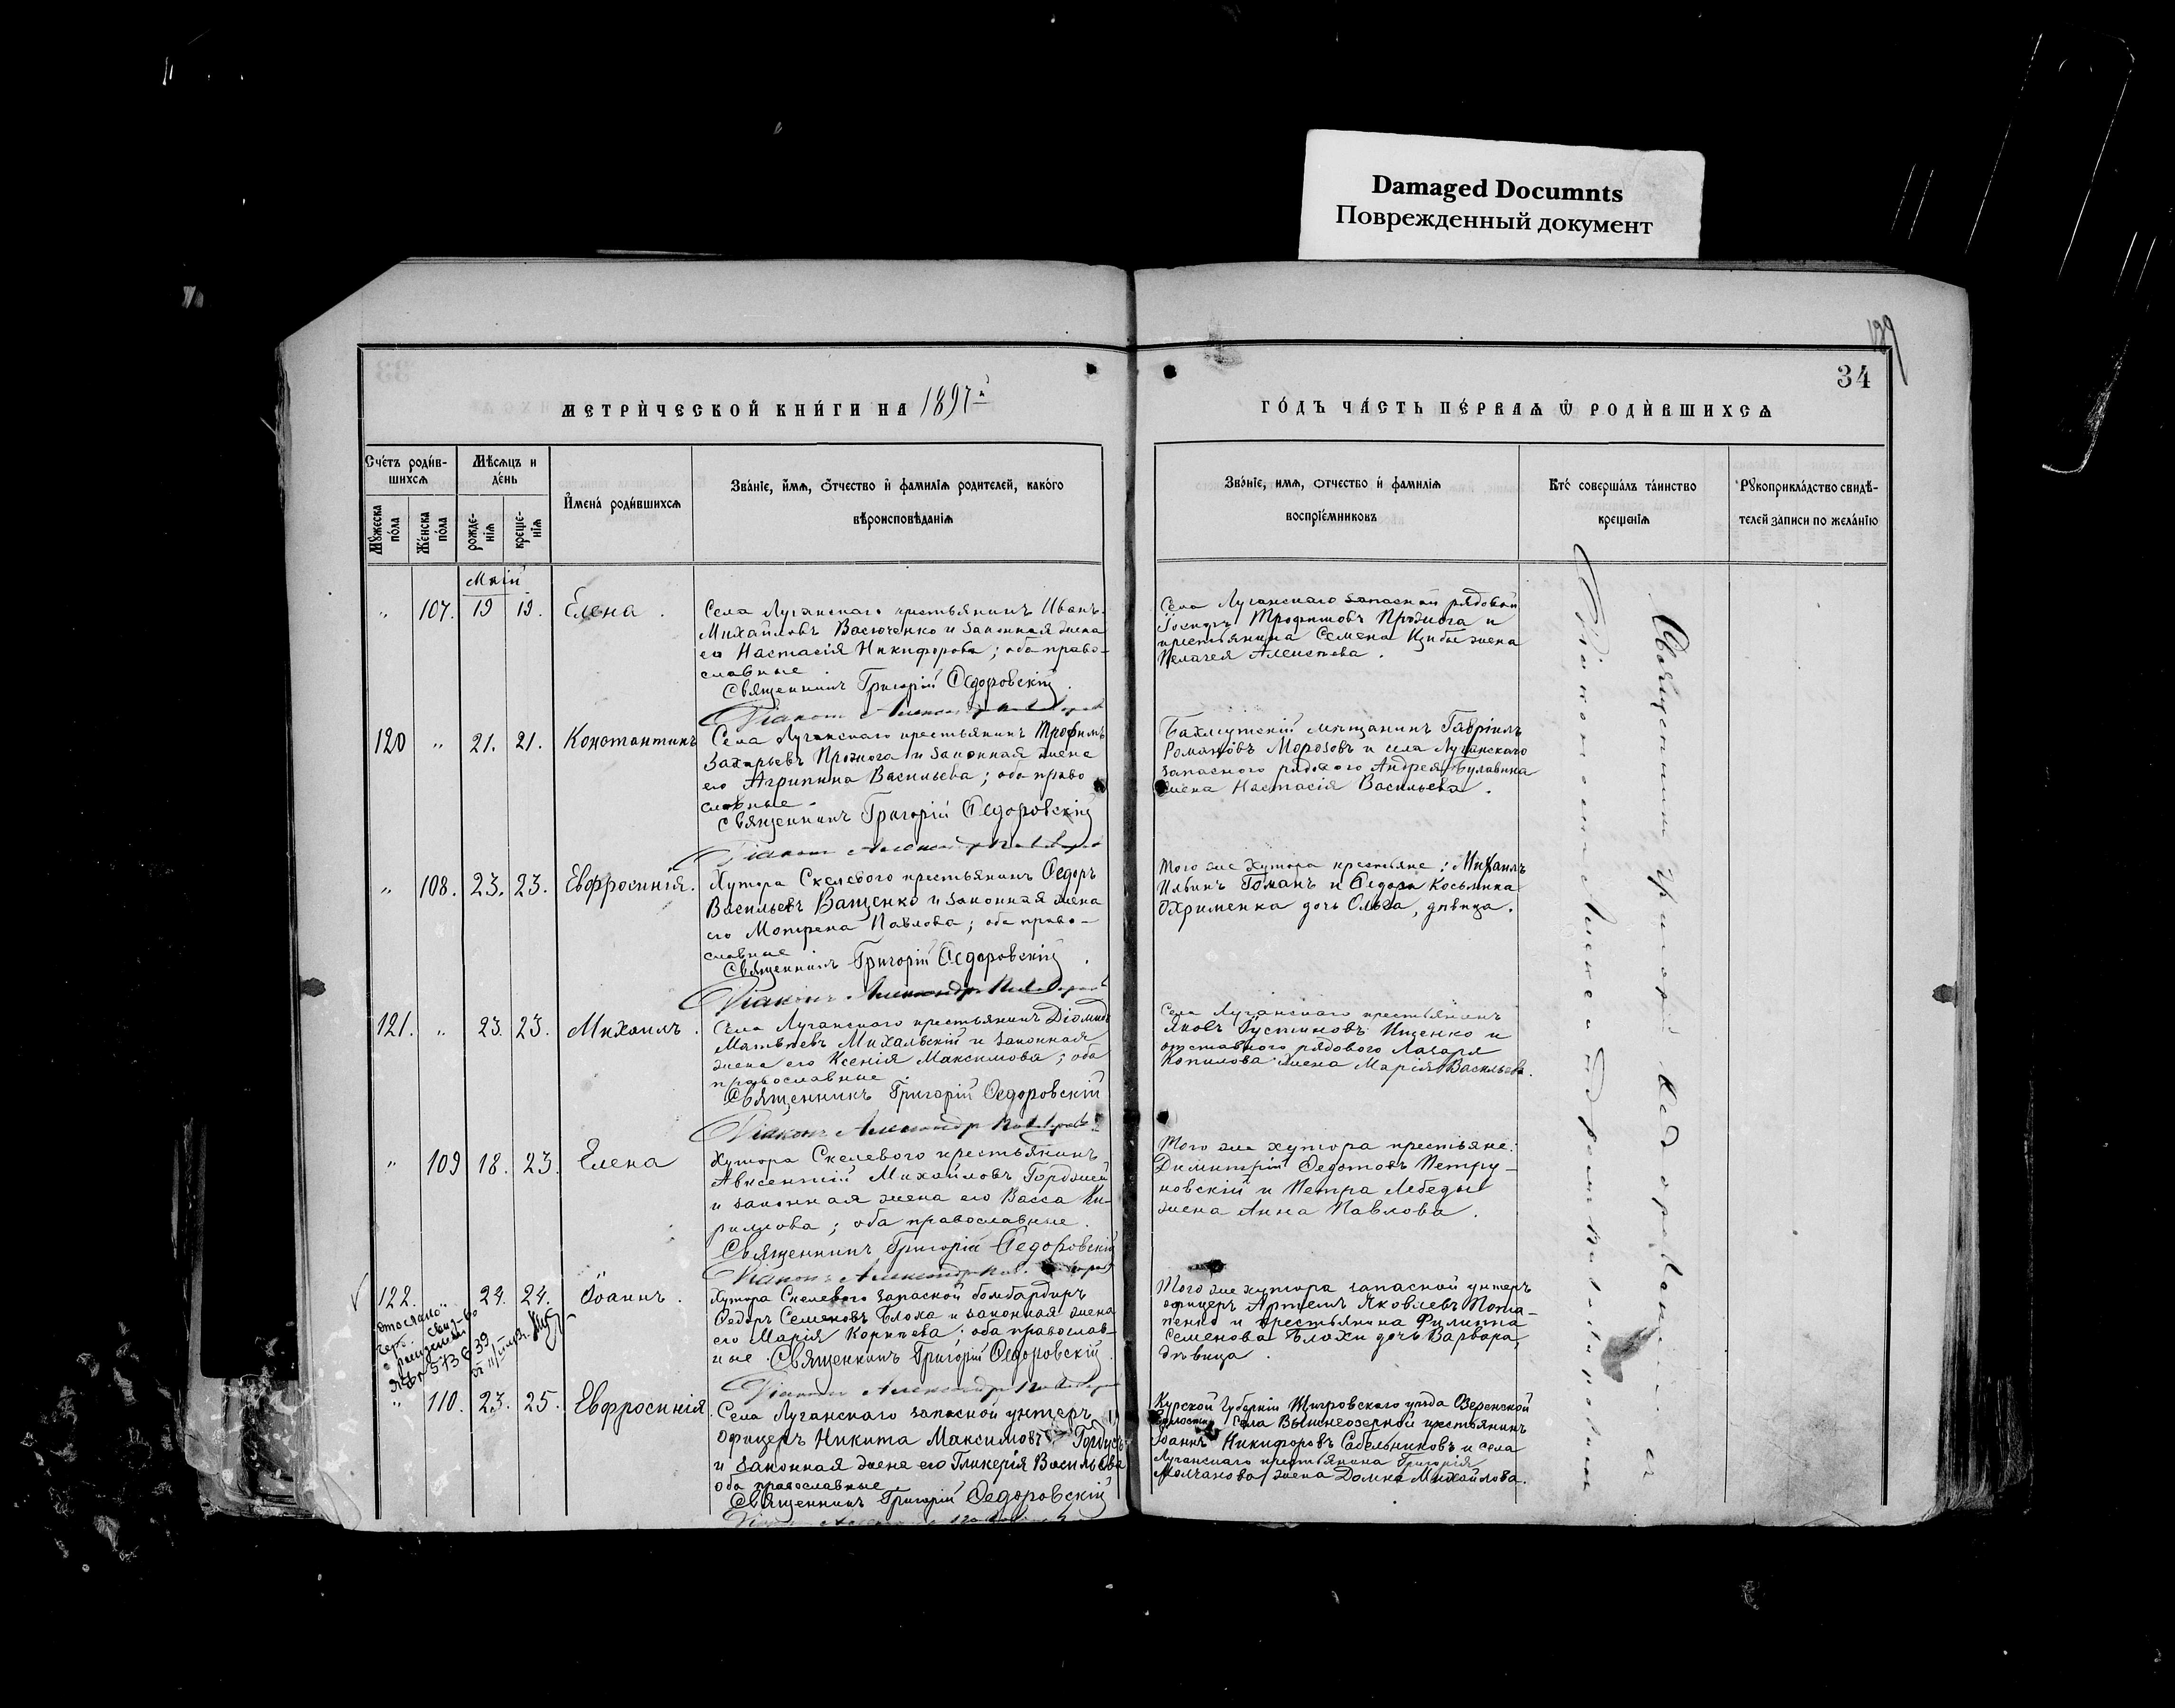 Damaged Documnts
Поврежденный документ
189
34
МЕТРИЧЕСКОЙ КНИГИ НА 1897й
ГОДЪ ЧАСТЬ ПЕРВАЯ Ѿ РОДИВШИХСЯ
Счетъ родив-
шихся
Мѣсяцъ и
день
Мꙋжеска
пола
Женска
пола
рожде-
нія
креще-
нія
Имена родившихся
Званіе, имя, отчество и фамилія родителей, какого
вѣроисповѣданія
Званіе, имя, отчество и фамилія
воспріемниковъ
Кто совершалъ таинство
крещенія
Рꙋкоприкладство свидѣ-
телей записи по желанію
Май
" 107. 19 19. Елена.
Села Луганскаго крестьянинъ Иванъ
Михайловъ Васюченко и законная жена
его Настасія Никифорова; оба право-
славные.
Священникъ Григорій Ѳедоровскій.
Діаконъ Александръ
Села Луганскаго запасной рядовой
Іосифъ Трофимовъ Прожога и
крестьянина Семена Цыбы жена
Пелагея Алексѣева.
120 " 21. 21. Константинъ
Села Луганскаго крестьянинъ Трофимъ
Захарьевъ Прожога и законная жена
его Агрипина Васильева; оба право
славные.
Священникъ Григорій Ѳедоровскій
Діаконъ Александръ
Бахмутскій мѣщанинъ Гавріилъ
Романовъ Морозовъ и села Луганскаго
запасного рядового Андрея Булавина
жена Настасія Васильева.
" 108. 23. 23. Евфросинія.
Хутора Скелевого крестьянинъ Ѳедоръ
Васильевъ Ващенко и законная жена
его Мотрена Павлова; оба право-
славные
Священникъ Григорій Ѳедоровскій.
Діаконъ Александръ
Того же хутора крестьяне: Михаилъ
Ильинъ Гоманъ и Ѳедора Косьмина
Охрименка дочь Ольга, дѣвица.
121. " 23. 23. Михаилъ.
Села Луганскаго крестьянинъ Діомидъ
Матвѣевъ Михальскій и законная
жена его Ксенія Максимова; оба
православные
Священникъ Григорій Ѳедоровскій
Діаконъ Александръ
Села Луганскаго крестьянинъ
Яковъ Іустиновъ Ищенко и
отставного рядового Лазаря
Копилова жена Марія Васильева.
" 109 18. 23. Елена
Хутора Скелевого крестьянинъ
Авксентій Михайловъ Гордѣй
и законная жена его Васса Ки-
рилова; оба православные.
Священникъ Григорій Ѳедоровскій
Діаконъ Александръ
Того же хутора крестьяне:
Димитрій Ѳедотовъ Петру-
новскій и Петра Лебеды
жена Анна Павлова.
122. " 24. 24. Іоаннъ.
Хутора Скелевого запасной бомбардиръ
Ѳедоръ Семеновъ Блоха и законная жена
его Марія Корнѣева; оба православ-
ные. Священникъ Григорій Ѳедоровскій.
Діаконъ Александръ
Того же хутора запасной унтеръ
офицеръ Артемъ Яковлевъ Пота-
пенко и крестьянина Филиппа
Семенова Блохи дочь Варвара,
дѣвица.
" 110. 23. 25. Евфросинія.
Села Луганскаго запасной унтеръ
офицеръ Никита Максимовъ
и законная жена его Гликерія Васильева
оба православные
Священникъ Григорій Ѳедоровскій
Курской Губерніи Щигровскаго уѣзда Озеренской
волости села Вышнеозерной крестьянинъ
Іоаннъ Никифоровъ Сабельниковъ и села
Луганскаго крестьянина Григорія
Молчанова жена Домна Михайлова.
Священникъ Григорій Ѳедоровскій съ
Діакономъ Александромъ